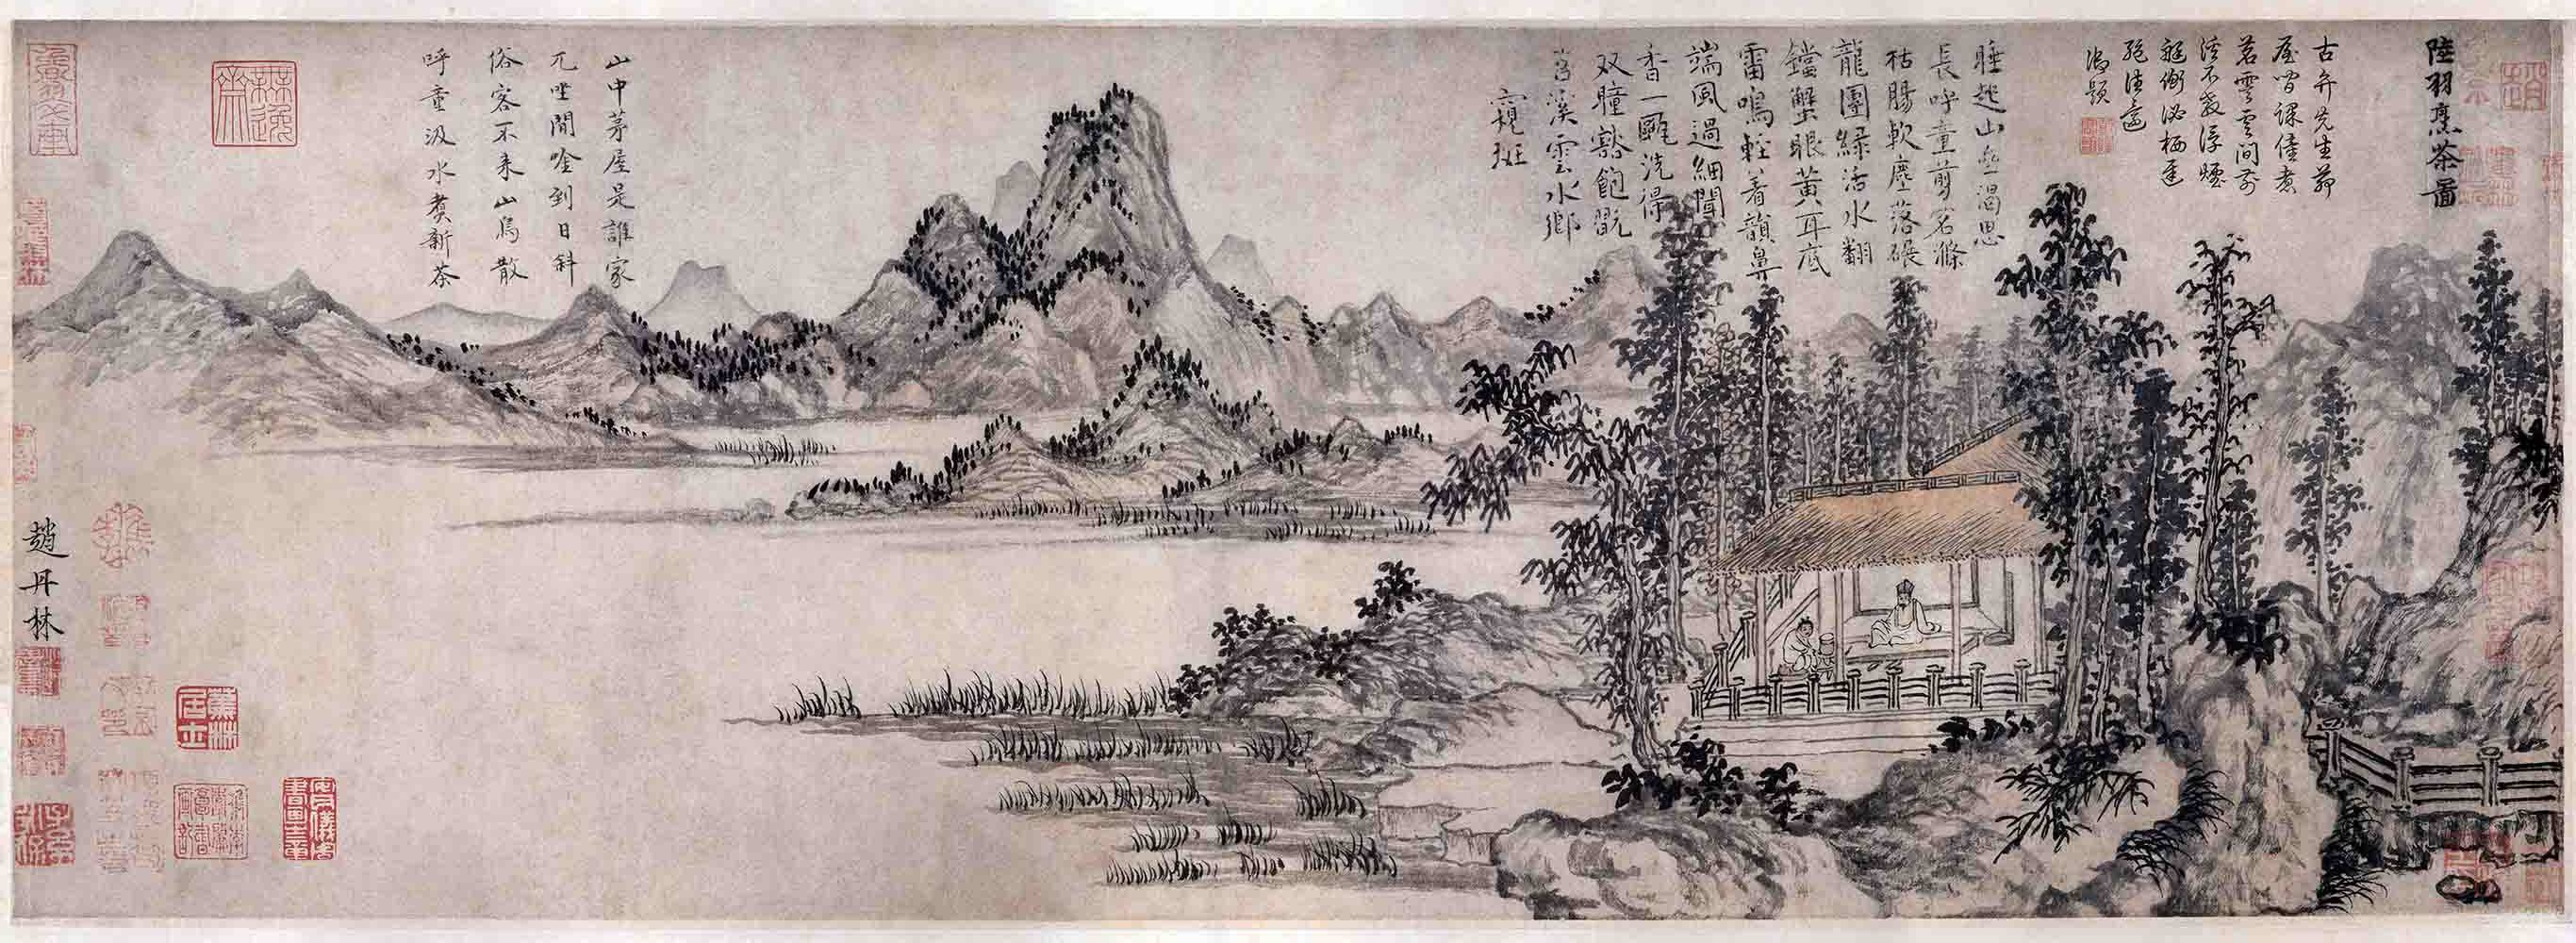 陸羽烹茶圖
古弁先生茆
屋閒課僮煮
茗雪雲間前
溪不教浮煙
艇衡泌栖遲
絕往還
御題
睡起山齋渴思
長呼童剪茗滌
枯腸軟塵落碾
龍團綠活水翻
鐺蟹眼黃耳底
雷鳴輕着韻鼻
端風過細聞
香一甌洗得
双瞳豁飽翫
苕溪雲水鄉
窺斑
山中茅屋是誰家
兀坐閒吟到日斜
俗客不来山鳥散
呼童汲水煑新茶
趙丹林
蕉林居士